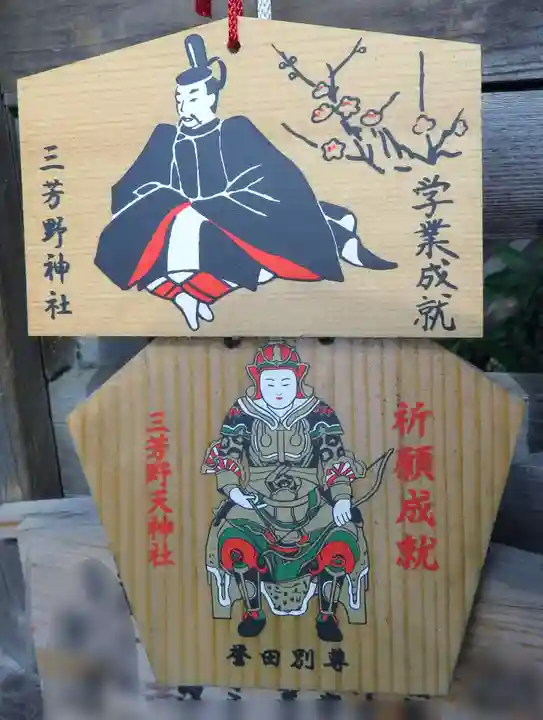 学業成就
三芳野神社
祈願成就
三芳野天神社
誉田別尊